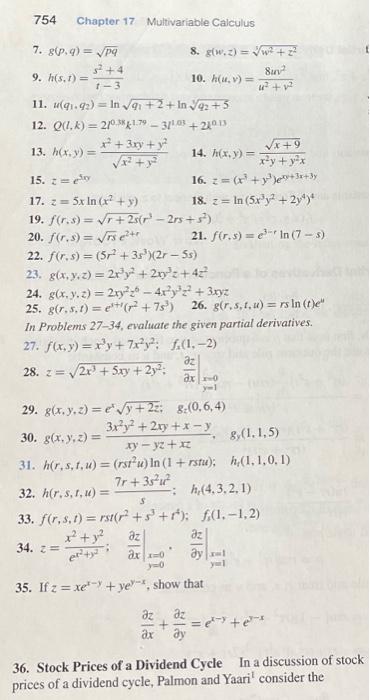 754 Chapter 17 Multivariable Calculus
7. g(p, q) = √pq
8. g(w, z) = ∛w² + z²
9. h(s, t) = s² + 4 / t − 3
10. h(u, v) = 8uv² / u² + v²
11. u(q₁, q₂) = ln √q₁ + 2 + ln ∛q₂ + 5
12. Q(l, k) = 2l^0.38 k^1.79 − 3l^1.03 + 2k^0.13
13. h(x, y) = x² + 3xy + y² / √x² + y²
14. h(x, y) = √x + 9 / x²y + y²x
15. z = e^5xy
16. z = (x³ + y³)e^xy+3x+3y
17. z = 5x ln (x² + y)
18. z = ln (5x³y² + 2y⁴)⁴
19. f(r, s) = √r + 2s(r³ − 2rs + s²)
20. f(r, s) = √rs e^2+r
21. f(r, s) = e^3−r ln (7 − s)
22. f(r, s) = (5r² + 3s³)(2r − 5s)
23. g(x, y, z) = 2x³y² + 2xy³z + 4z²
24. g(x, y, z) = 2xy²z⁶ − 4x²y³z² + 3xyz
25. g(r, s, t) = e^s+t(r² + 7s³)
26. g(r, s, t, u) = rs ln (t)e^u
In Problems 27–34, evaluate the given partial derivatives.
27. f(x, y) = x³y + 7x²y²; fₓ(1, −2)
28. z = √2x³ + 5xy + 2y²; ∂z/∂x | x=0 y=1
29. g(x, y, z) = eˣ√y + 2z; g_z(0, 6, 4)
30. g(x, y, z) = 3x²y² + 2xy + x − y / xy − yz + xz, g_y(1, 1, 5)
31. h(r, s, t, u) = (rst²u) ln (1 + rstu); h_t(1, 1, 0, 1)
32. h(r, s, t, u) = 7r + 3s²u² / s; h_t(4, 3, 2, 1)
33. f(r, s, t) = rst(r² + s³ + t⁴); f_s(1, −1, 2)
34. z = x² + y² / e^x²+y²; ∂z/∂x | x=0 y=0, ∂z/∂y | x=1 y=1
35. If z = xe^x−y + ye^y−x, show that
∂z/∂x + ∂z/∂y = e^x−y + e^y−x
36. Stock Prices of a Dividend Cycle In a discussion of stock
prices of a dividend cycle, Palmon and Yaari¹ consider the